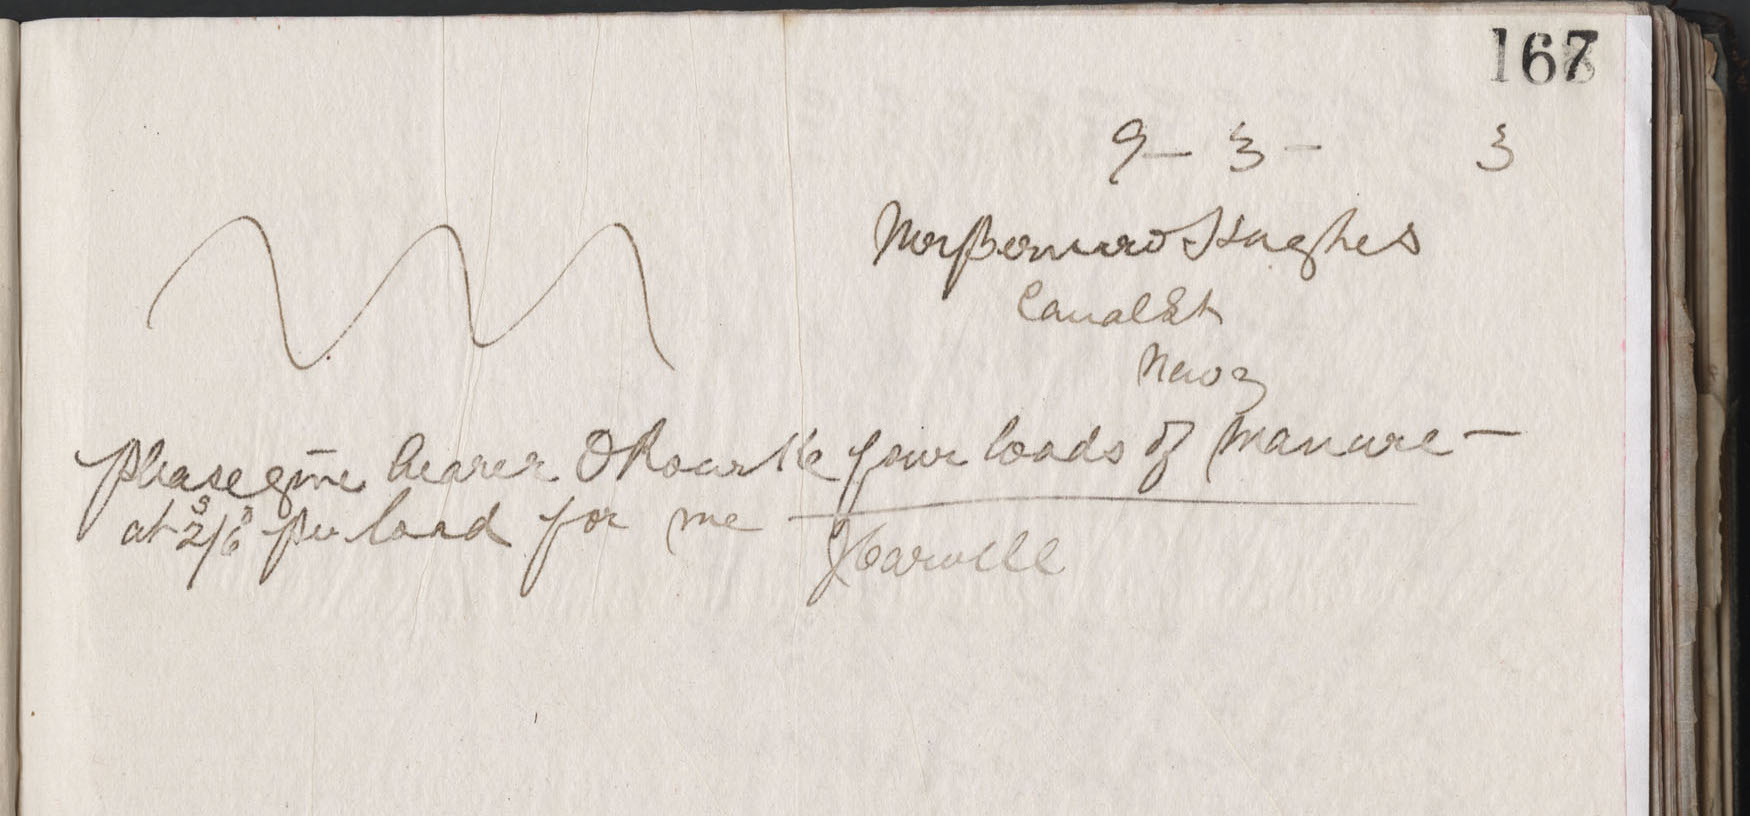 167
9 - 3 - 3
Mr Bernard Hughes
Canal St
please give bearer O Rourke four loads of manure -
at 2s/6d per load for me